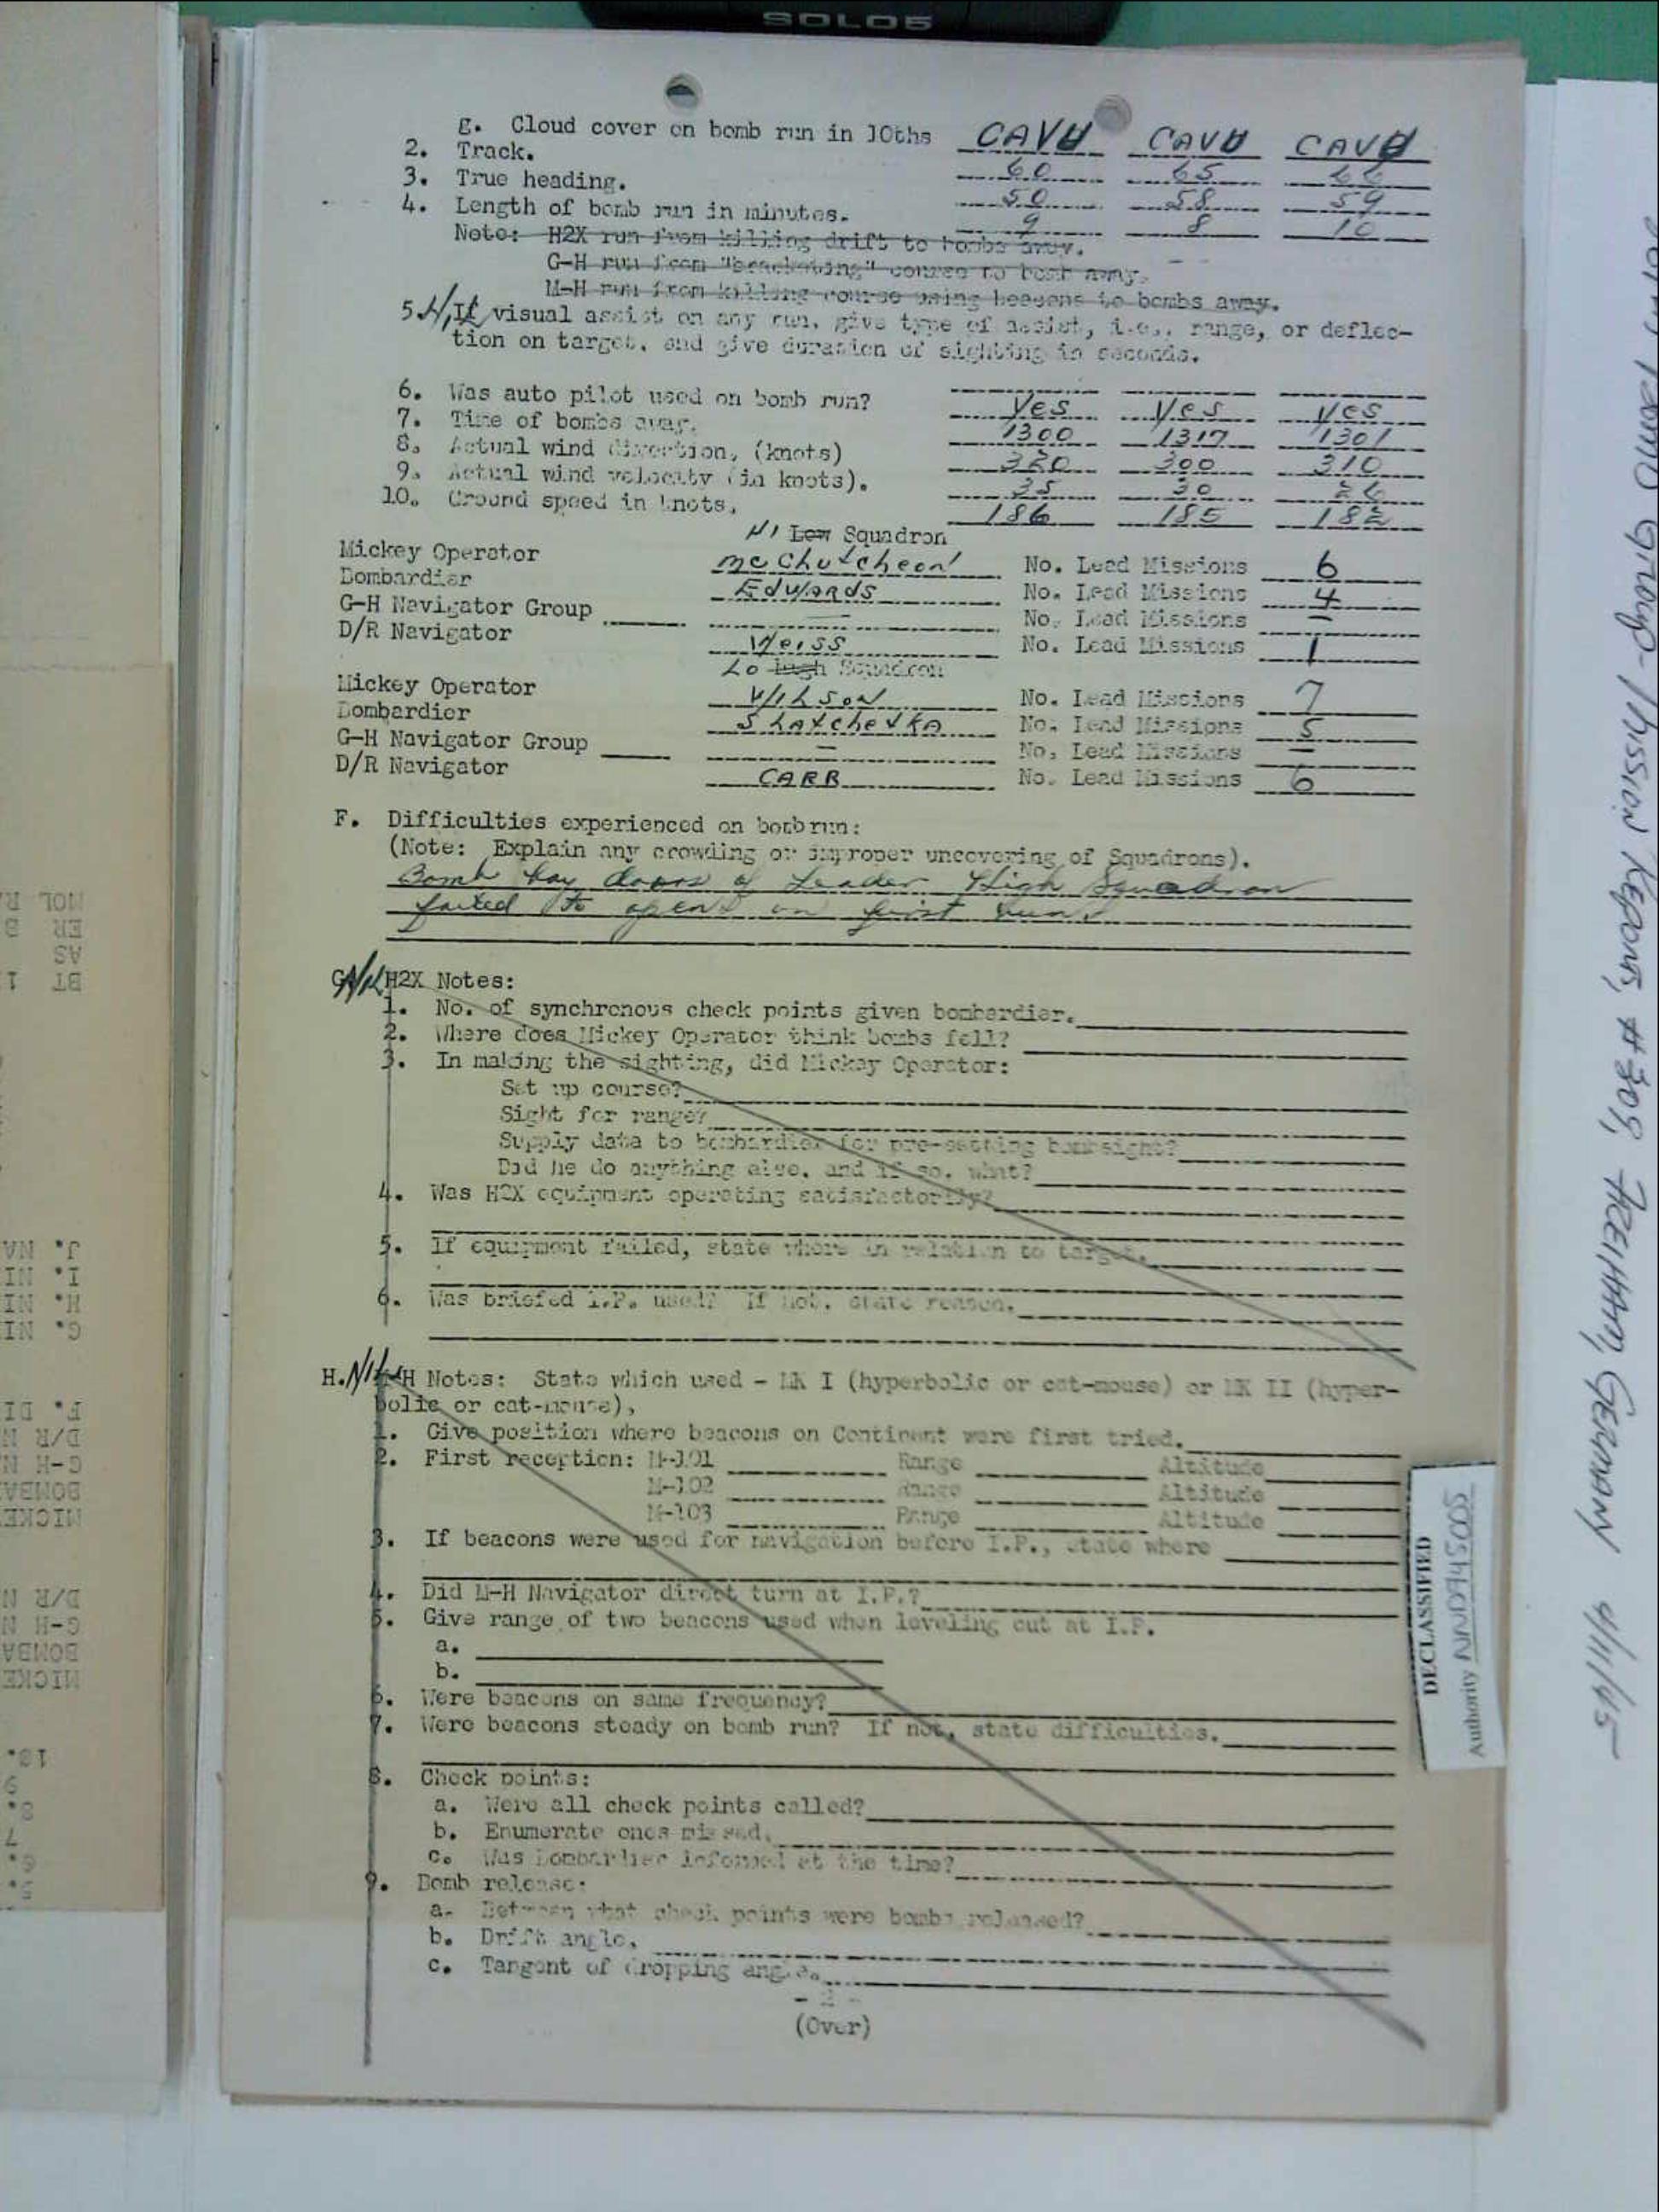 SOLO5
g. Cloud cover on bomb run in 10ths CAVU CAVU CAVU
2. Track. 60 65 66
3. True heading. 50 58 59
4. Length of bomb run in minutes. 9 8 10
Note: H2X run from killing drift to bombs away.
G-H run from "bracketing" course to bomb away.
M-H run from killing course using beacons to bombs away.
5. If visual assist on any run, give type of assist, i.e., range, or deflec-
tion on target, and give duration of sighting in seconds.
6. Was auto pilot used on bomb run? Yes Yes Yes
7. Time of bombs away. 1300 1317 1301
8. Actual wind direction, (knots) 320 300 310
9. Actual wind velocity (in knots). 35 30 26
10. Ground speed in knots. 186 185 182
Hi Low Squadron
Mickey Operator McChutcheon No. Lead Missions 6
Bombardier Edwards No. Lead Missions 4
G-H Navigator Group - No. Lead Missions -
D/R Navigator Weiss No. Lead Missions 1
Lo High Squadron
Mickey Operator Wilson No. Lead Missions 7
Bombardier Shatchetka No. Lead Missions 5
G-H Navigator Group - No. Lead Missions -
D/R Navigator CARR No. Lead Missions 6
F. Difficulties experienced on bomb run:
(Note: Explain any crowding or improper uncovering of Squadrons).
Bomb bay doors of Leader High Squadron
failed to open on first run.
G. H2X Notes:
1. No. of synchronous check points given bombardier.
2. Where does Mickey Operator think bombs fell?
3. In making the sighting, did Mickey Operator:
Set up course?
Sight for range?
Supply data to bombardier for pre-setting bombsight?
Did he do anything else, and if so, what?
4. Was H2X equipment operating satisfactorily?
5. If equipment failed, state where in relation to target.
6. Was briefed I.P. used? If not, state reason.
H. M-H Notes: State which used - MK I (hyperbolic or cat-mouse) or MK II (hyper-
bolic or cat-mouse),
1. Give position where beacons on Continent were first tried.
2. First reception: M-101 Range Altitude
M-102 Range Altitude
M-103 Range Altitude
3. If beacons were used for navigation before I.P., state where
4. Did M-H Navigator direct turn at I.P.?
5. Give range of two beacons used when leveling out at I.P.
a.
b.
6. Were beacons on same frequency?
7. Were beacons steady on bomb run? If not, state difficulties.
8. Check points:
a. Were all check points called?
b. Enumerate ones missed.
c. Was Bombardier informed at the time?
9. Bomb release:
a. Between what check points were bombs released?
b. Drift angle.
c. Tangent of dropping angle.
- 2 -
(Over)
DECLASSIFIED
Authority NND745005
Bomb Group - Mission Reports, #308, TREIHAM, GERMANY 4/11/45